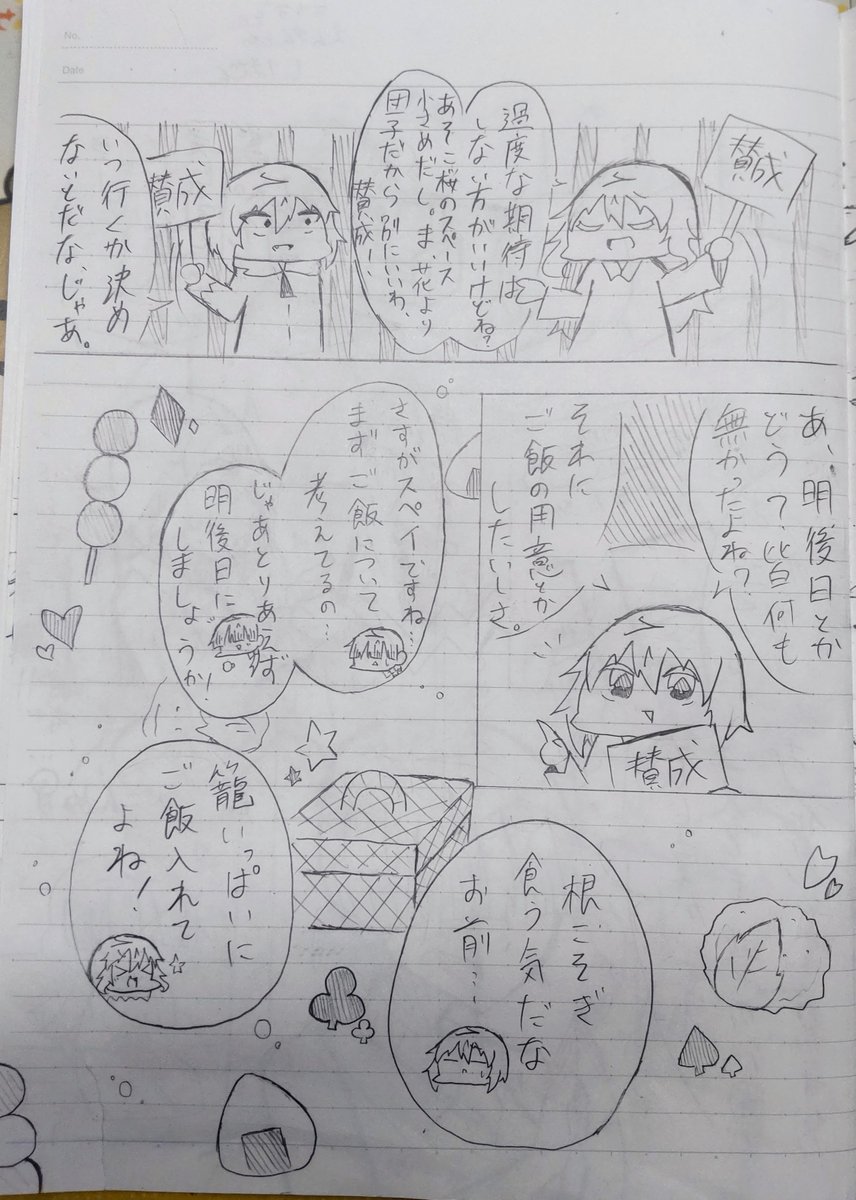 No.
Date
賛成
過度な期待は
しない方がいいけどね?
あそこ桜のスペース
少なめだし。ま、花より
団子だから別にいいわ、
賛成ー、
賛成
いつ行くか決め
ないとだな、じゃあ。
あ、明後日とか
どう?、皆何も
無かったよね?
それに
ご飯の用意とか
したいしさ。
賛成
さすがスペイですね…
まずご飯について
考えてるの…
じゃあとりあえず
明後日に
しましょうか!
根こそぎ
食う気だな
お前…
籠いっぱいに
ご飯入れて
よね!